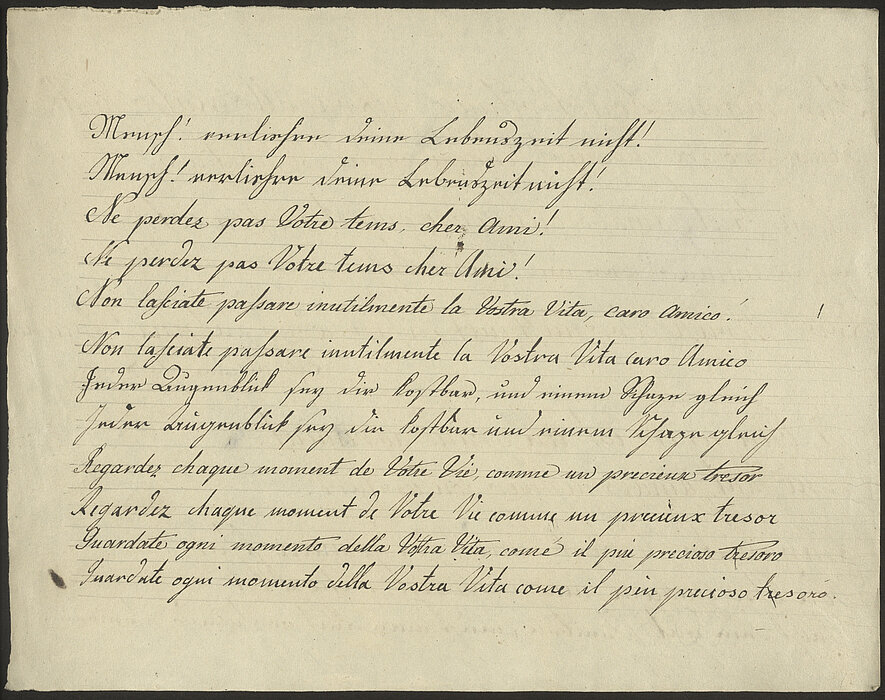 Mensch! verliehre deine Lebenszeit nicht!
Mensch! verliehre deine Lebenszeit nicht!
Ne perdez pas Votre tems, cher Ami!
Ne perdez pas Votre tems cher Ami!
Non lasciate passare inutilmente la Vostra Vita, caro Amico! !
Non lasciate passare inutilmente la Vostra Vita caro Amico
Jeder Augenblick sey dir kostbar, und einem Schaze gleich
Jeder Augenblick sey dir kostbar und einem Schaze gleich
Regardez chaque moment de Votre Vie, comme un precieux tresor
Regardez chaque moment de Votre Vie comme un precieux tresor
Guardate ogni momento della Vostra Vita, come il piu precioso tresoro
Guardate ogni momento della Vostra Vita come il piu precioso tresoro.